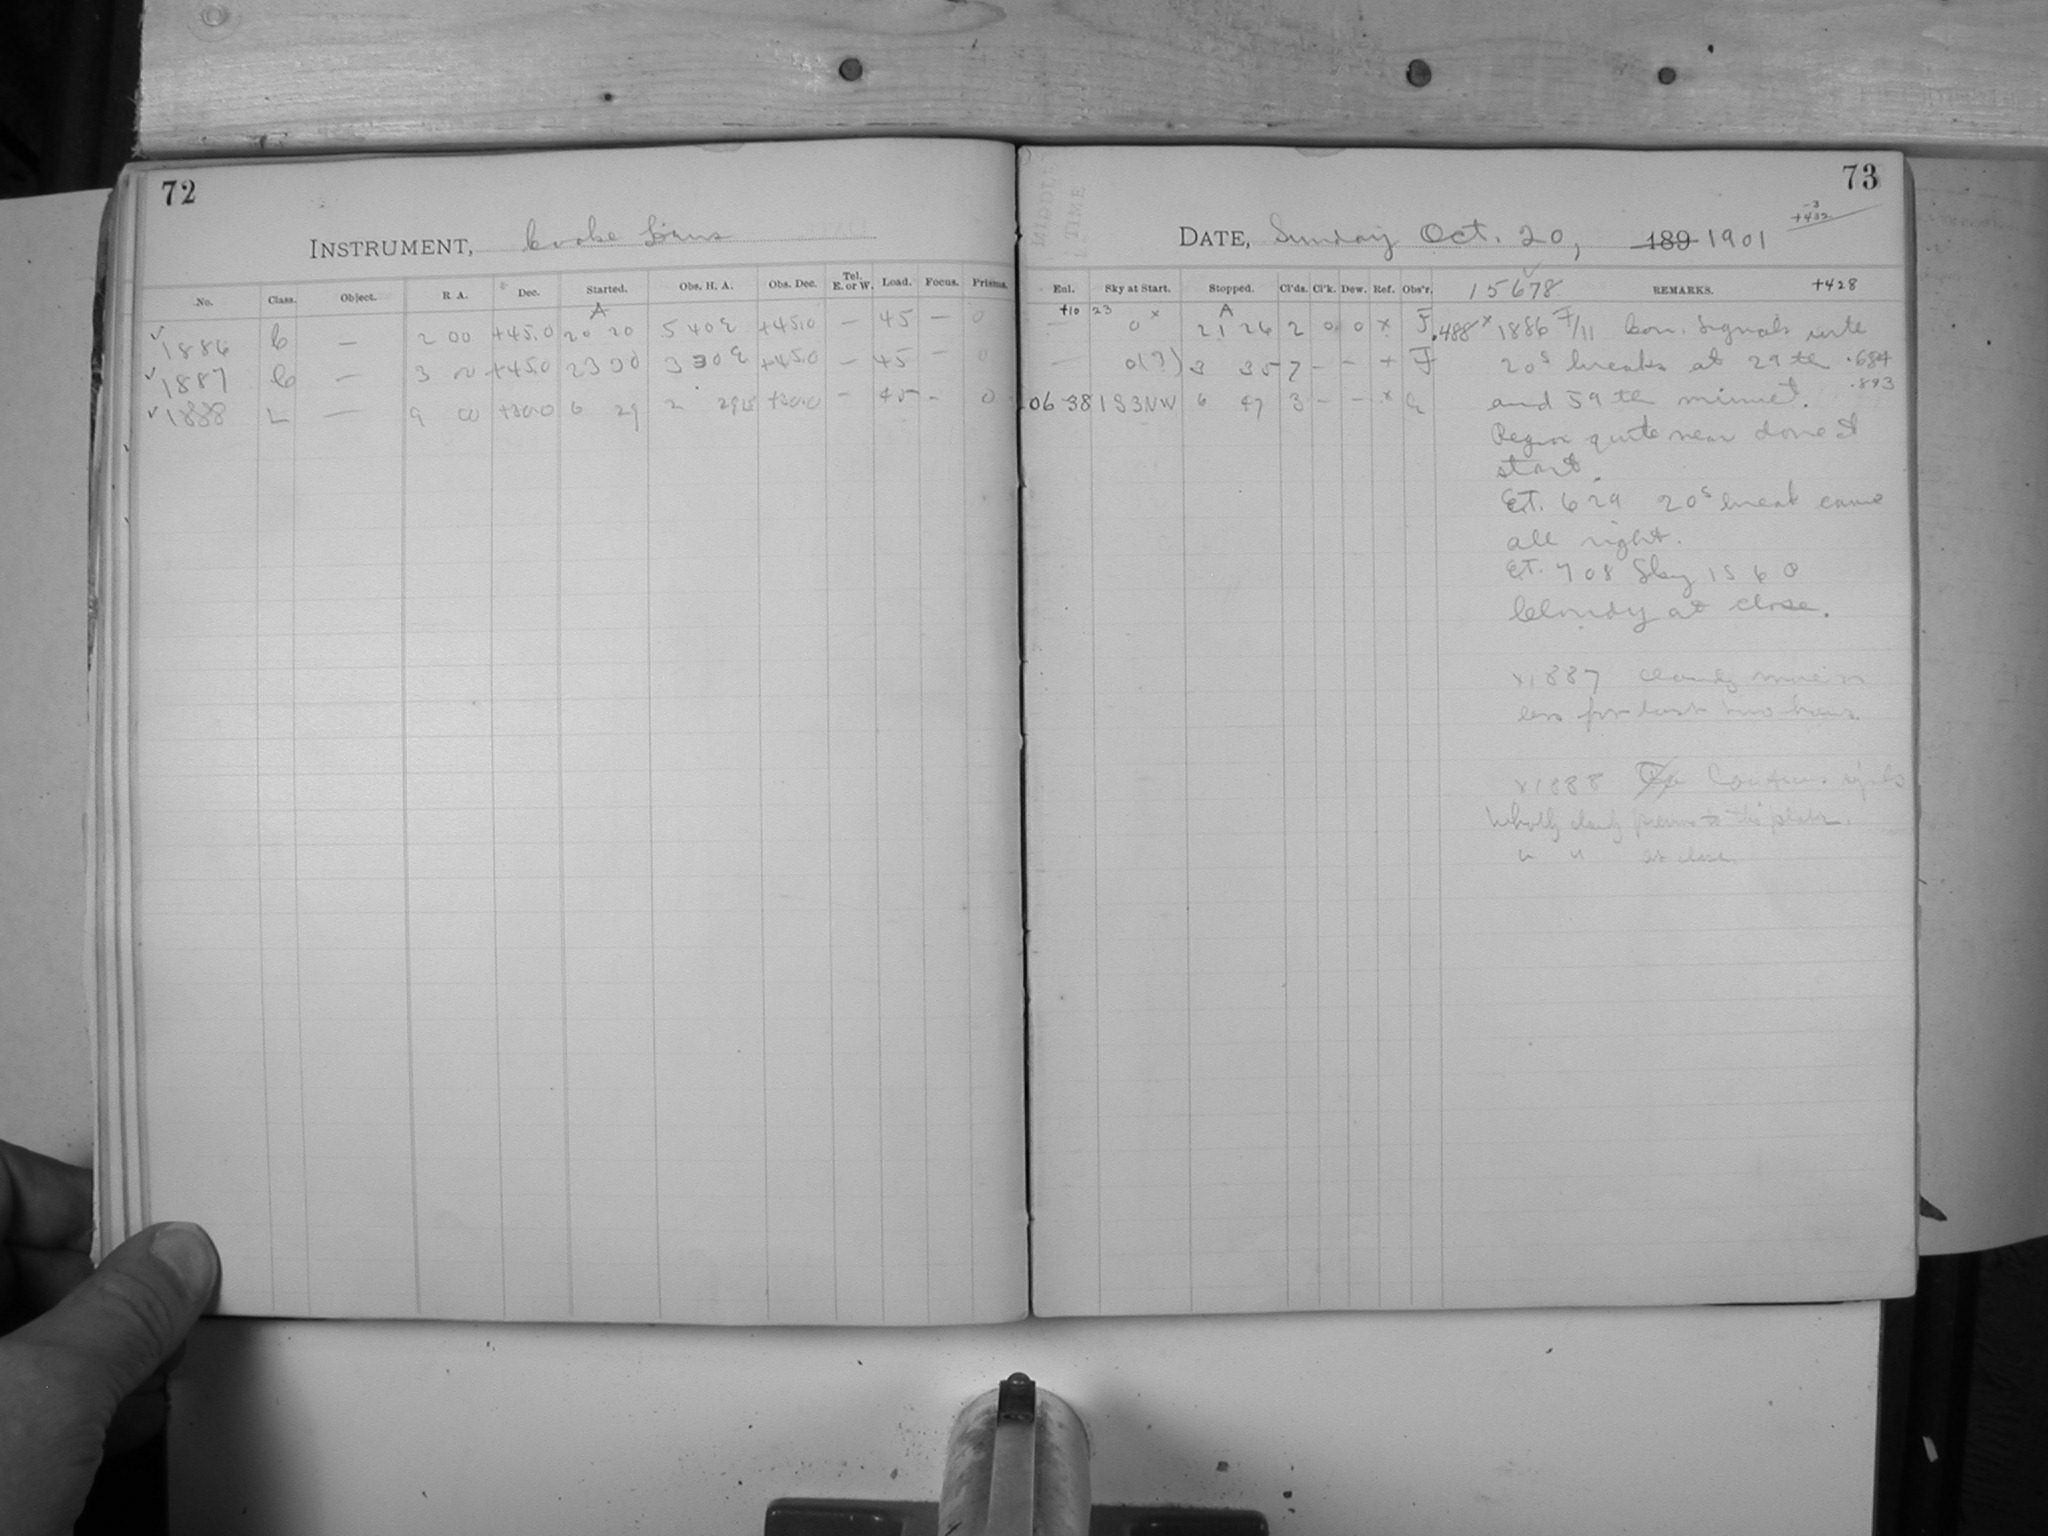 72
INSTRUMENT, Cooke Lens
No. Class. Object. R A. Dec. Started. Obs. H. A. Obs. Dec. Tel. E. or W. Load. Focus. Prisms.
A
1886 C — 2 00 +45.0 20 20 5 40 E +45.0 — 45 — 0
1887 C — 3 00 +45.0 23 30 3 30 E +45.0 — 45 — 0
1888 L — 9 00 +30.0 6 29 2 29 +30.0 — 45 - 0
73
-3
+432
MIDDLE
TIME
DATE, Sunday Oct. 20, 189 1901
Enl. Sky at Start. Stopped. Cl'ds. Cl'k. Dew. Ref. Obs'r. 15678 REMARKS. +428
+10 23 A
— 0 x 21 26 2 0 0 x F .488 x 1886 F/11 Con. Signals with
— 0(?) 3 35 7 - - + F 20s breaks at 29 th .684
06 38 1S3NW 6 47 3 - - x and 59 th minnet. .893
Region quite near dome at
start.
E.T. 6 29 20s break came
all right.
E.T. 7 08 Sky 1S 6 0
Cloudy at close.
x1887 cloudy more or
less for last two hours.
x1888 Common signals
Wholly cloudy previous to this plate.
" " at close.